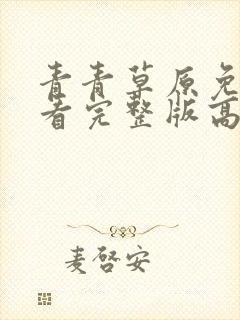 青青草原免
看完整版高
麦啓安